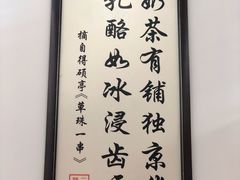 奶茶有铺独京
乳酪如冰浸齿
摘自得硕亭《草珠一串》